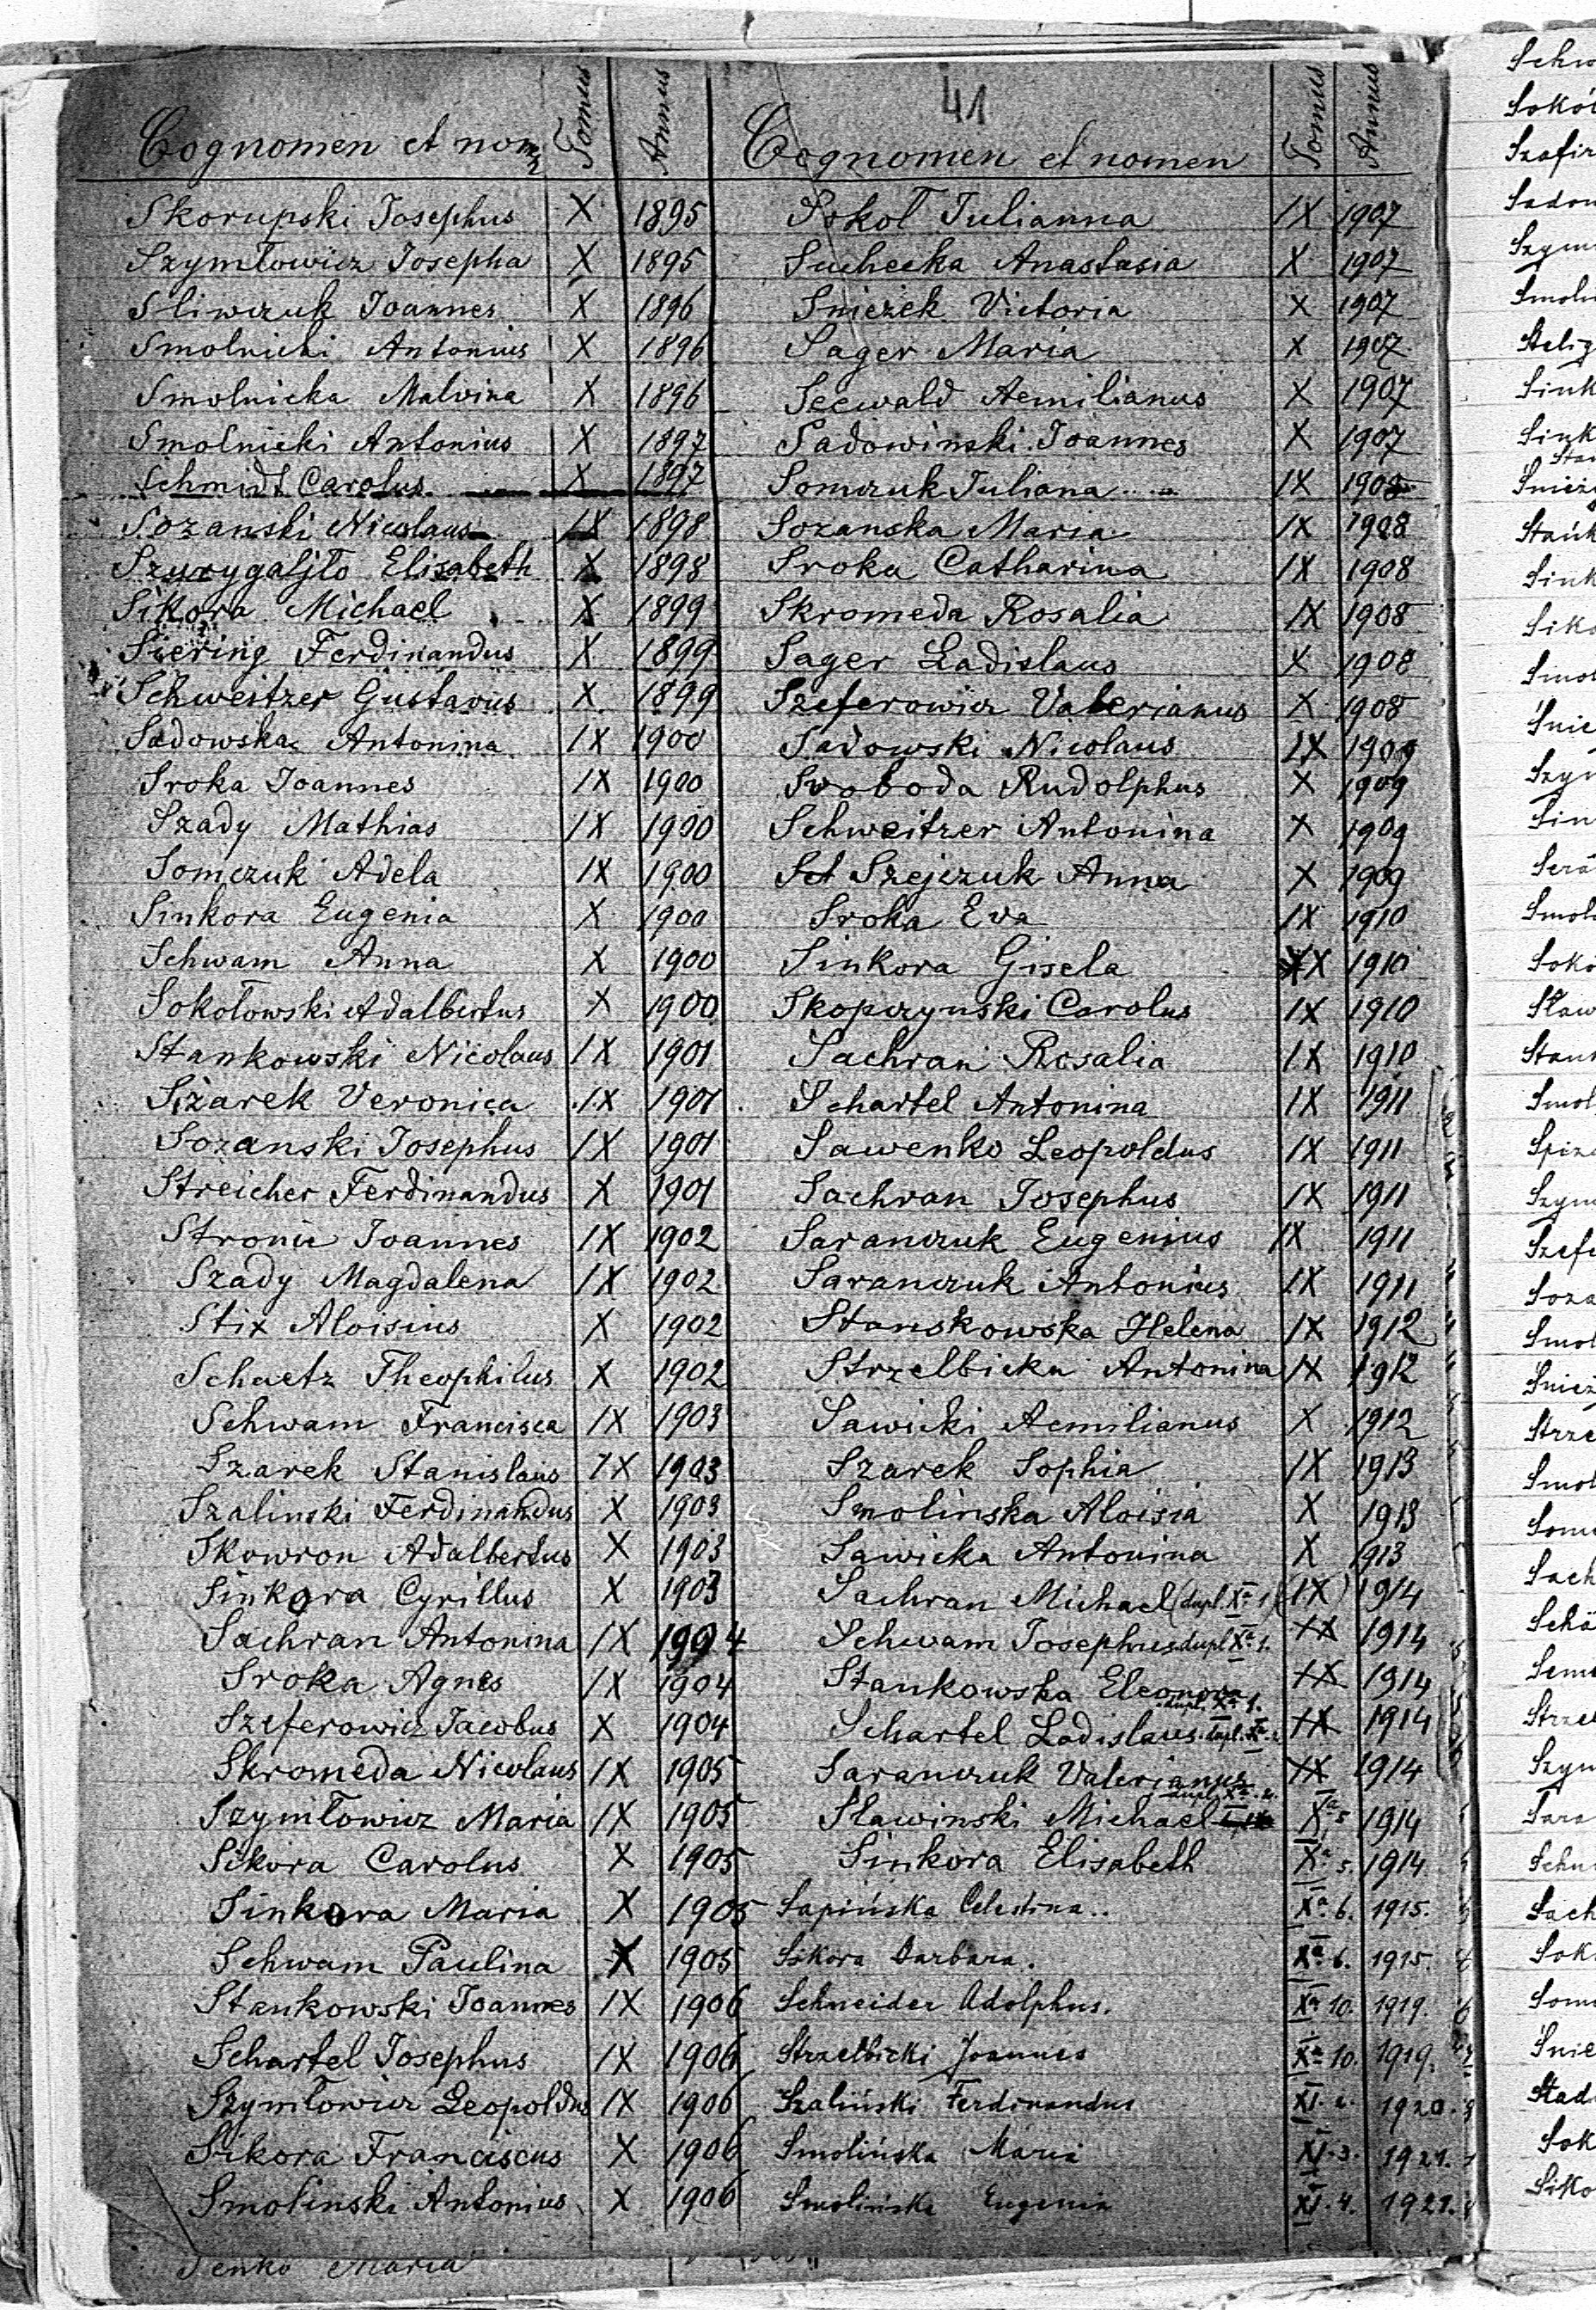 41
Cognomen et nomen Tomus Annus
Skorupski Josephus X 1895
Szymłowicz Josepha X 1895
Sliwczuk Joannes X 1896
Smolnicki Antonius X 1896
Smolnicka Malvina X 1896
Smolnicki Antonius X 1897
Schmidt Carolus X 1897
Sozanski Nicolaus IX 1898
Elisabeth X 1898
Sikora Michael X 1899
Siering Ferdinandus X 1899
Schweitzer Gustavus X 1899
Sadowska Antonina IX 1900
Sroka Joannes IX 1900
Szady Mathias IX 1900
Somczuk Adela IX 1900
Sinkora Eugenia X 1900
Schwam Anna X 1900
Sokołowski Adalbertus X 1900
Stankowski Nicolaus IX 1901
Sizarek Veronica IX 1901
Sozanski Josephus IX 1901
Streicher Ferdinandus X 1901
Stronic Joannes IX 1902
Szady Magdalena IX 1902
Stix Aloisius X 1902
Schaetz Theophilus X 1902
Schwam Francisca IX 1903
Szarek Stanislaus IX 1903
Szalinski Ferdinandus X 1903
Skowron Adalbertus X 1903
Sinkora Cyrillus X 1903
Sachran Antonina IX 1904
Sroka Agnes IX 1904
Szeferowicz Jacobus X 1904
Skromeda Nicolaus IX 1905
Szymłowicz Maria IX 1905
Sikora Carolus X 1905
Sinkora Maria X 1905
Schwam Paulina X 1905
Stankowski Joannes IX 1906
Schartel Josephus IX 1906
Szymłowicz Leopoldus IX 1906
Sikora Franciscus X 1906
Smolinski Antonius X 1906
Senko Maria
Cognomen et nomen Tomus Annus
Sokoł Julianna IX 1907
Suchecka Anastasia X 1907
Snieżek Victoria X 1907
Sager Maria X 1907
Seewald Aemilianus X 1907
Sadowinski Joannes X 1907
Somczuk Juliana IX 1908
Sozanska Maria IX 1908
Sroka Catharina IX 1908
Skromeda Rosalia IX 1908
Sager Ladislaus X 1908
Szeferowicz Valerianus X 1908
Sadowski Nicolaus IX 1909
Svoboda Rudolphus X 1909
Schweitzer Antonina X 1909
Szejczuk Anna X 1909
Sroka Eva IX 1910
Sinkora Gisela X 1910
Skopczynski Carolus IX 1910
Sachran Rosalia IX 1910
Schartel Antonina IX 1911
Sawenko Leopoldus IX 1911
Sachran Josephus IX 1911
Saranczuk Eugenius IX 1911
Saranczuk Antonius IX 1911
Stanskowska Helena IX 1912
Strzelbicka Antonina IX 1912
Sawicki Aemilianus X 1912
Szarek Sophia IX 1913
Smolinska Aloisia X 1913
Sawicka Antonina X 1913
Sachran Michael (dupl. Xa 1) (IX) 1914
Schwam Josephus dupl Xa 1. IX 1914
Stankowska Eleonora dupl. Xa 1. IX 1914
Schartel Ladislaus dupl. Xa IX 1914
Saranczuk Valerianus dupl. Xa 2. IX 1914
Sławinski Michael Xa 5 1914
Sinkora Elisabeth Xa 5. 1914
Sapińska Celestina Xa 6. 1915.
Sikora Barbara. Xa 6. 1915.
Schneider Adolphus. Xa 10. 1919.
Strzelbicki Joannes Xa 10. 1919.
Szaliński Ferdinandus XI. 2. 1920.
Smolińska Maria XI. 3. 1921.
Smolińska Eugenia XI. 4. 1921.